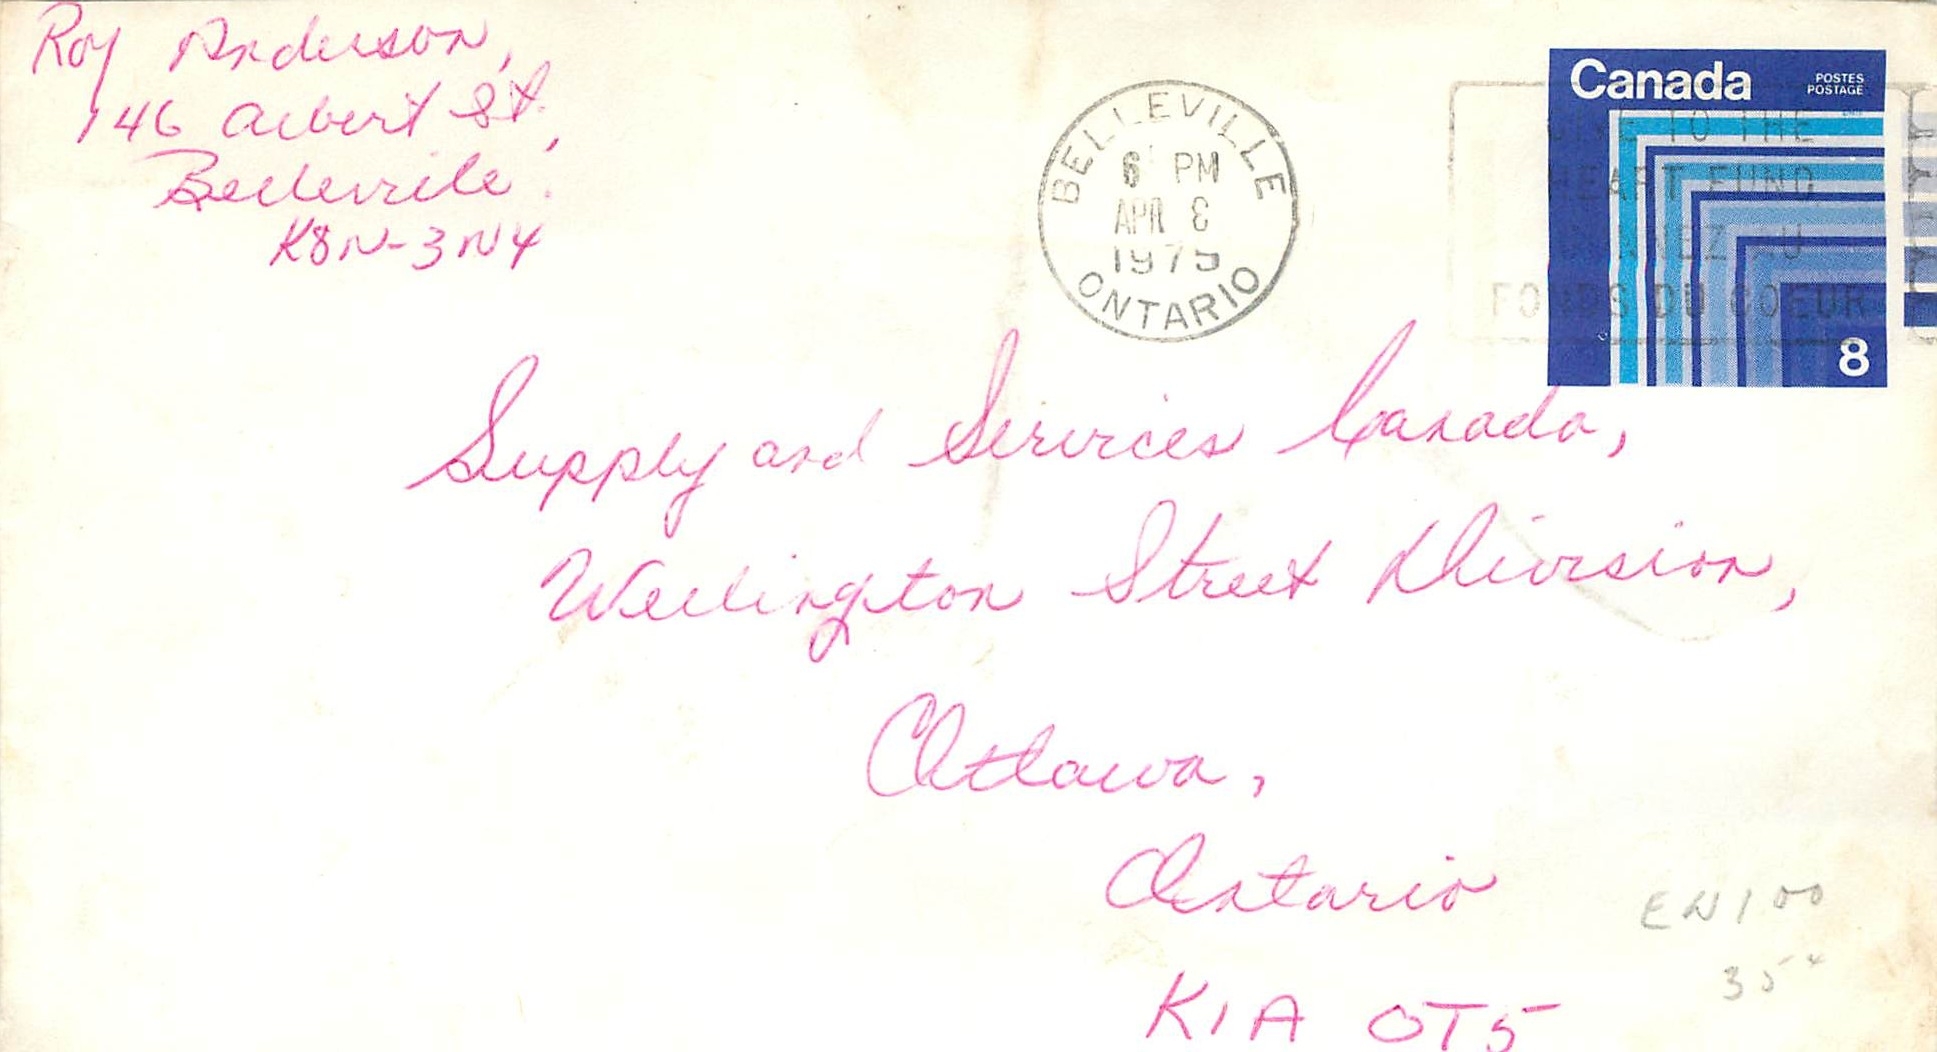 Roy Anderson,
146 Albert St.,
Belleville.
K8N-3N4
BELLEVILLE
6 PM
APR 8
1975
ONTARIO
Canada
POSTES
POSTAGE
GIVE TO THE
HEART FUND
DONNEZ AU
FONDS DU COEUR
8
Supply and Services Canada,
Wellington Street Division,
Ottawa,
Ontario
K1A 0T5
EN100
35